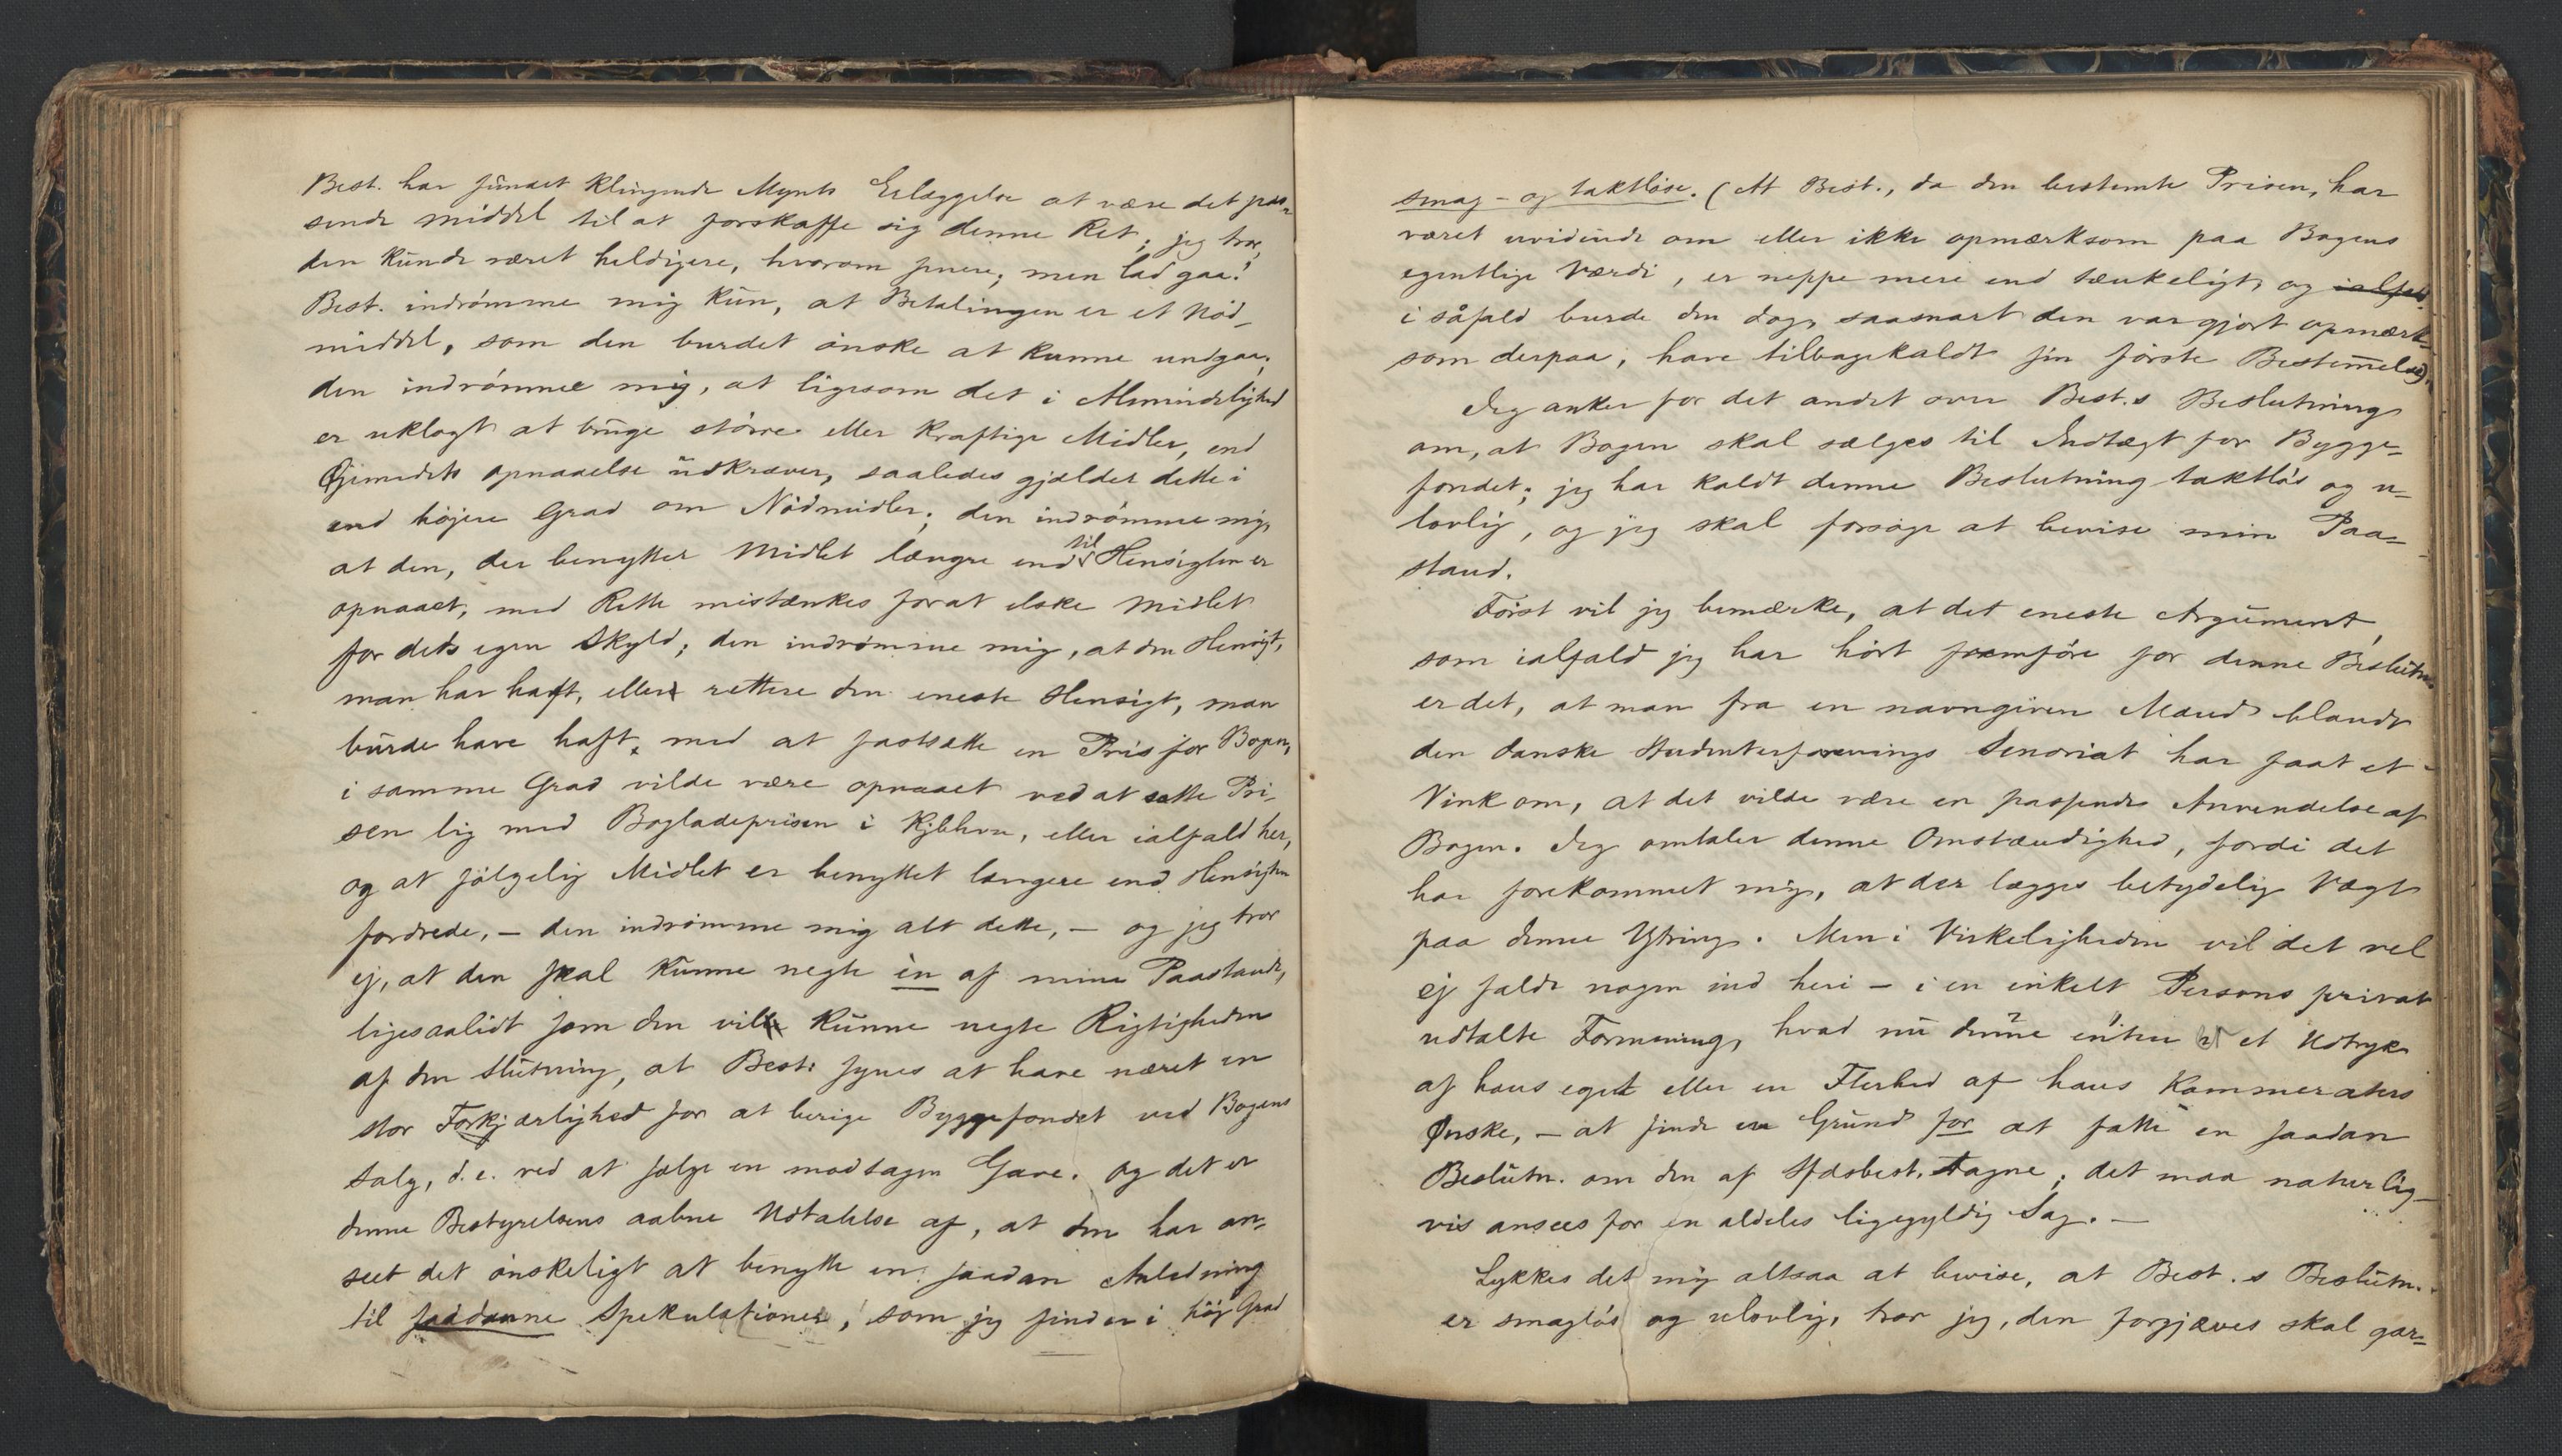 Best. har fundet klingende Mynts Erlæggelse at være det pas-
sende middel til at forskaffe sig denne Ret; jeg tror,
den kunde været heldigere, hvorom senere; men lad gaa!
Best. indrømme mig kun, at Betalingen er et Nød-
middel, som den burdet ønske at kunne undgaa;
den indrømme mig, at ligesom det i Almindelighed
er uklogt at bruge større eller kraftige Midler, end
Øjemedets opnaaelse udkræver, saaledes gjælder dette i
end højere Grad om Nødmidler; den indrømme mig,
at den, der benytter Midlet længre end til Hensigten er
opnaaet, med Rette mistænkes for at elske Midlet
for dets egen Skyld; den indrømme mig, at den Hensigt,
man har haft, eller rettere den eneste Hensigt, man
burde have haft, med at fastsætte en Pris for Bogen,
i samme Grad vilde være opnaaet ved at sætte Pri-
sen lig med Bogladeprisen i Kjbhvn, eller ialfald her,
og at følgelig Midlet er benyttet længere end Hensigten
fordrede, – den indrømme mig alt dette, – og jeg tror
ej, at den skal kunne negte èn af mine Paastande,
ligesaalidt som den vil kunne negte Rigtigheden
af den Slutning, at Best. synes at have næret en
stor Forkjærlighed for at berige Byggefondet ved Bogens
Salg, d.e. ved at sælge en modtagen Gave. og det er
denne Bestyrelsens aabne Udtalelse af, at den har an-
seet det ønskeligt at benytte en saadan Anledning
til saadanne Spekulationer, som jeg finder i høj Grad
smag- og taktløse. (At Best., da den bestemte Prisen, har
været uvidende om eller ikke opmærksom paa Bogens
egentlige Værdi, er neppe mere end tænkeligt, og ialfald
i såfald burde den dog, saasnart den var gjort opmærk-
som derpaa, have tilbagekaldt sin første Bestemmelse).
Jeg anker for det andet over Best.s Beslutning
om, at Bogen skal sælges til Indtægt for Bygge-
fondet; jeg har kaldt denne Beslutning taktløs og u-
lovlig, og jeg skal forsøge at bevise min Paa-
stand.
Først vil jeg bemærke, at det eneste Argument,
som ialfald jeg har hørt fremføre for denne Beslutn.
er det, at man fra en navngiven Mand blandt
den danske Studenterforenings Seniorat har faat et
Vink om, at det vilde være en passende Anvendelse af
Bogen. Jeg omtaler denne Omstændighed, fordi det
har forekommet mig, at der lægges betydelig Vægt
paa denne Ytring. Men i Virkeligheden vil det vel
ej falde nogen ind heri – i en enkelt Persons privat
udtalte Formening, hvad nu denne enten er et Udtryk
af hans eget eller en Flerhed af hans Kammeraters
Ønske, – at finde en Grund for at fatte en saadan
Beslutn. om den af Sfdsbest. tagne; det maa naturlig-
vis ansees for en aldeles ligegyldig Sag. –
Lykkes det mig altsaa at bevise, at Best.s Beslutn.
er smagløs og ulovlig, tror jeg, den forgjæves skal gar-